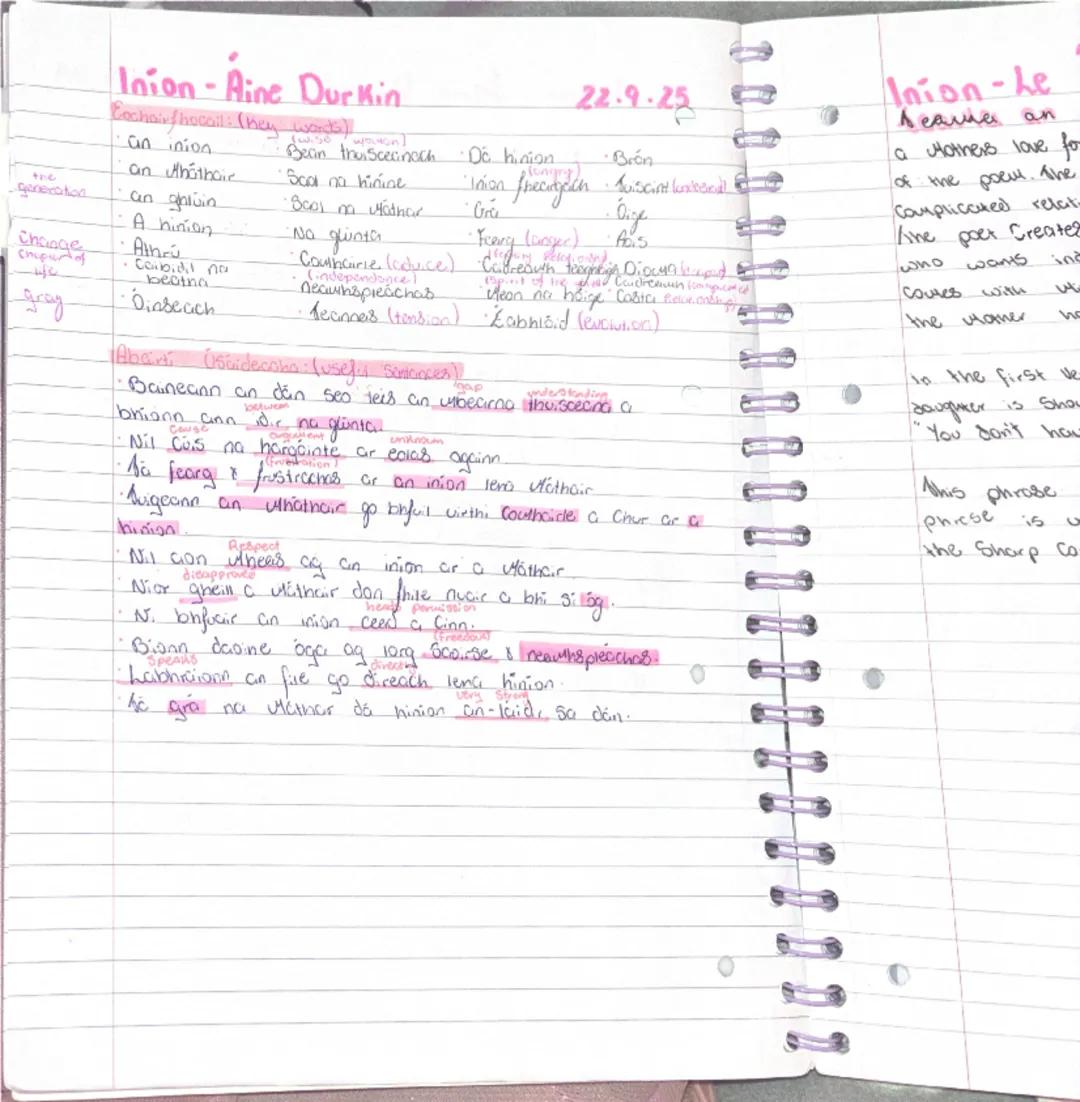 Iníon - Áine Durkin
22.9.25
Eochairfhocail: (key words)
(wise woman)
· an iníon · Bean thuisceanach · Dá hiníon · Brón
(angry)
· an Mháthair · Saol na hiníne · Iníon fheargach · Tuiscint (understand)
the generation
· an ghlúin · Saol na Máthar · Grá · Óige
· A hiníon · Na glúnta · Fearg (anger) · Aois
Change
· Athrú · Comhairle (advice) · Caidreamh teaghlaigh
chapter of life
· Caibidil na beatha · (independence) neamhspleáchas · Meon na hóige Caidreamh Casta
gray
· Óinseach · Teannas (tension) · Éabhlóid (evolution)
Abairtí Úsáideacha: (useful sentences)
gap understanding
· Baineann an dán seo leis an mbearna thuisceana a
between
bhíonn ann idir na glúnta.
Cause argument unknown
· Níl cúis na hargóinte ar eolas againn.
(frustration)
· Tá fearg & frustrachas ar an iníon lena Máthair
· Tuigeann an Mháthair go bhfuil uirthi Comhairle a Chur ar a
hiníon.
Respect
· Níl aon Mheas ag an iníon ar a Máthair
disapprove
· Níor ghéill a Máthair don fhile nuair a bhí sí óg.
heads permission
· Ní bhfuair an iníon cead a Cinn.
(freedom)
· Bíonn daoine óga ag lorg Saoirse & neamhspleáchas.
Speaks directly
· Labhraíonn an file go díreach lena hiníon.
very Strong
· Tá grá na Máthar dá hiníon an-láidir sa dán.
Iníon - Le
a Mothers love for
of the poem. The
Complicated
the poet Creates
who wants
Comes with
the Mother
In the first
daughter is
"You don't
This phrase
phrase is
the Sharp